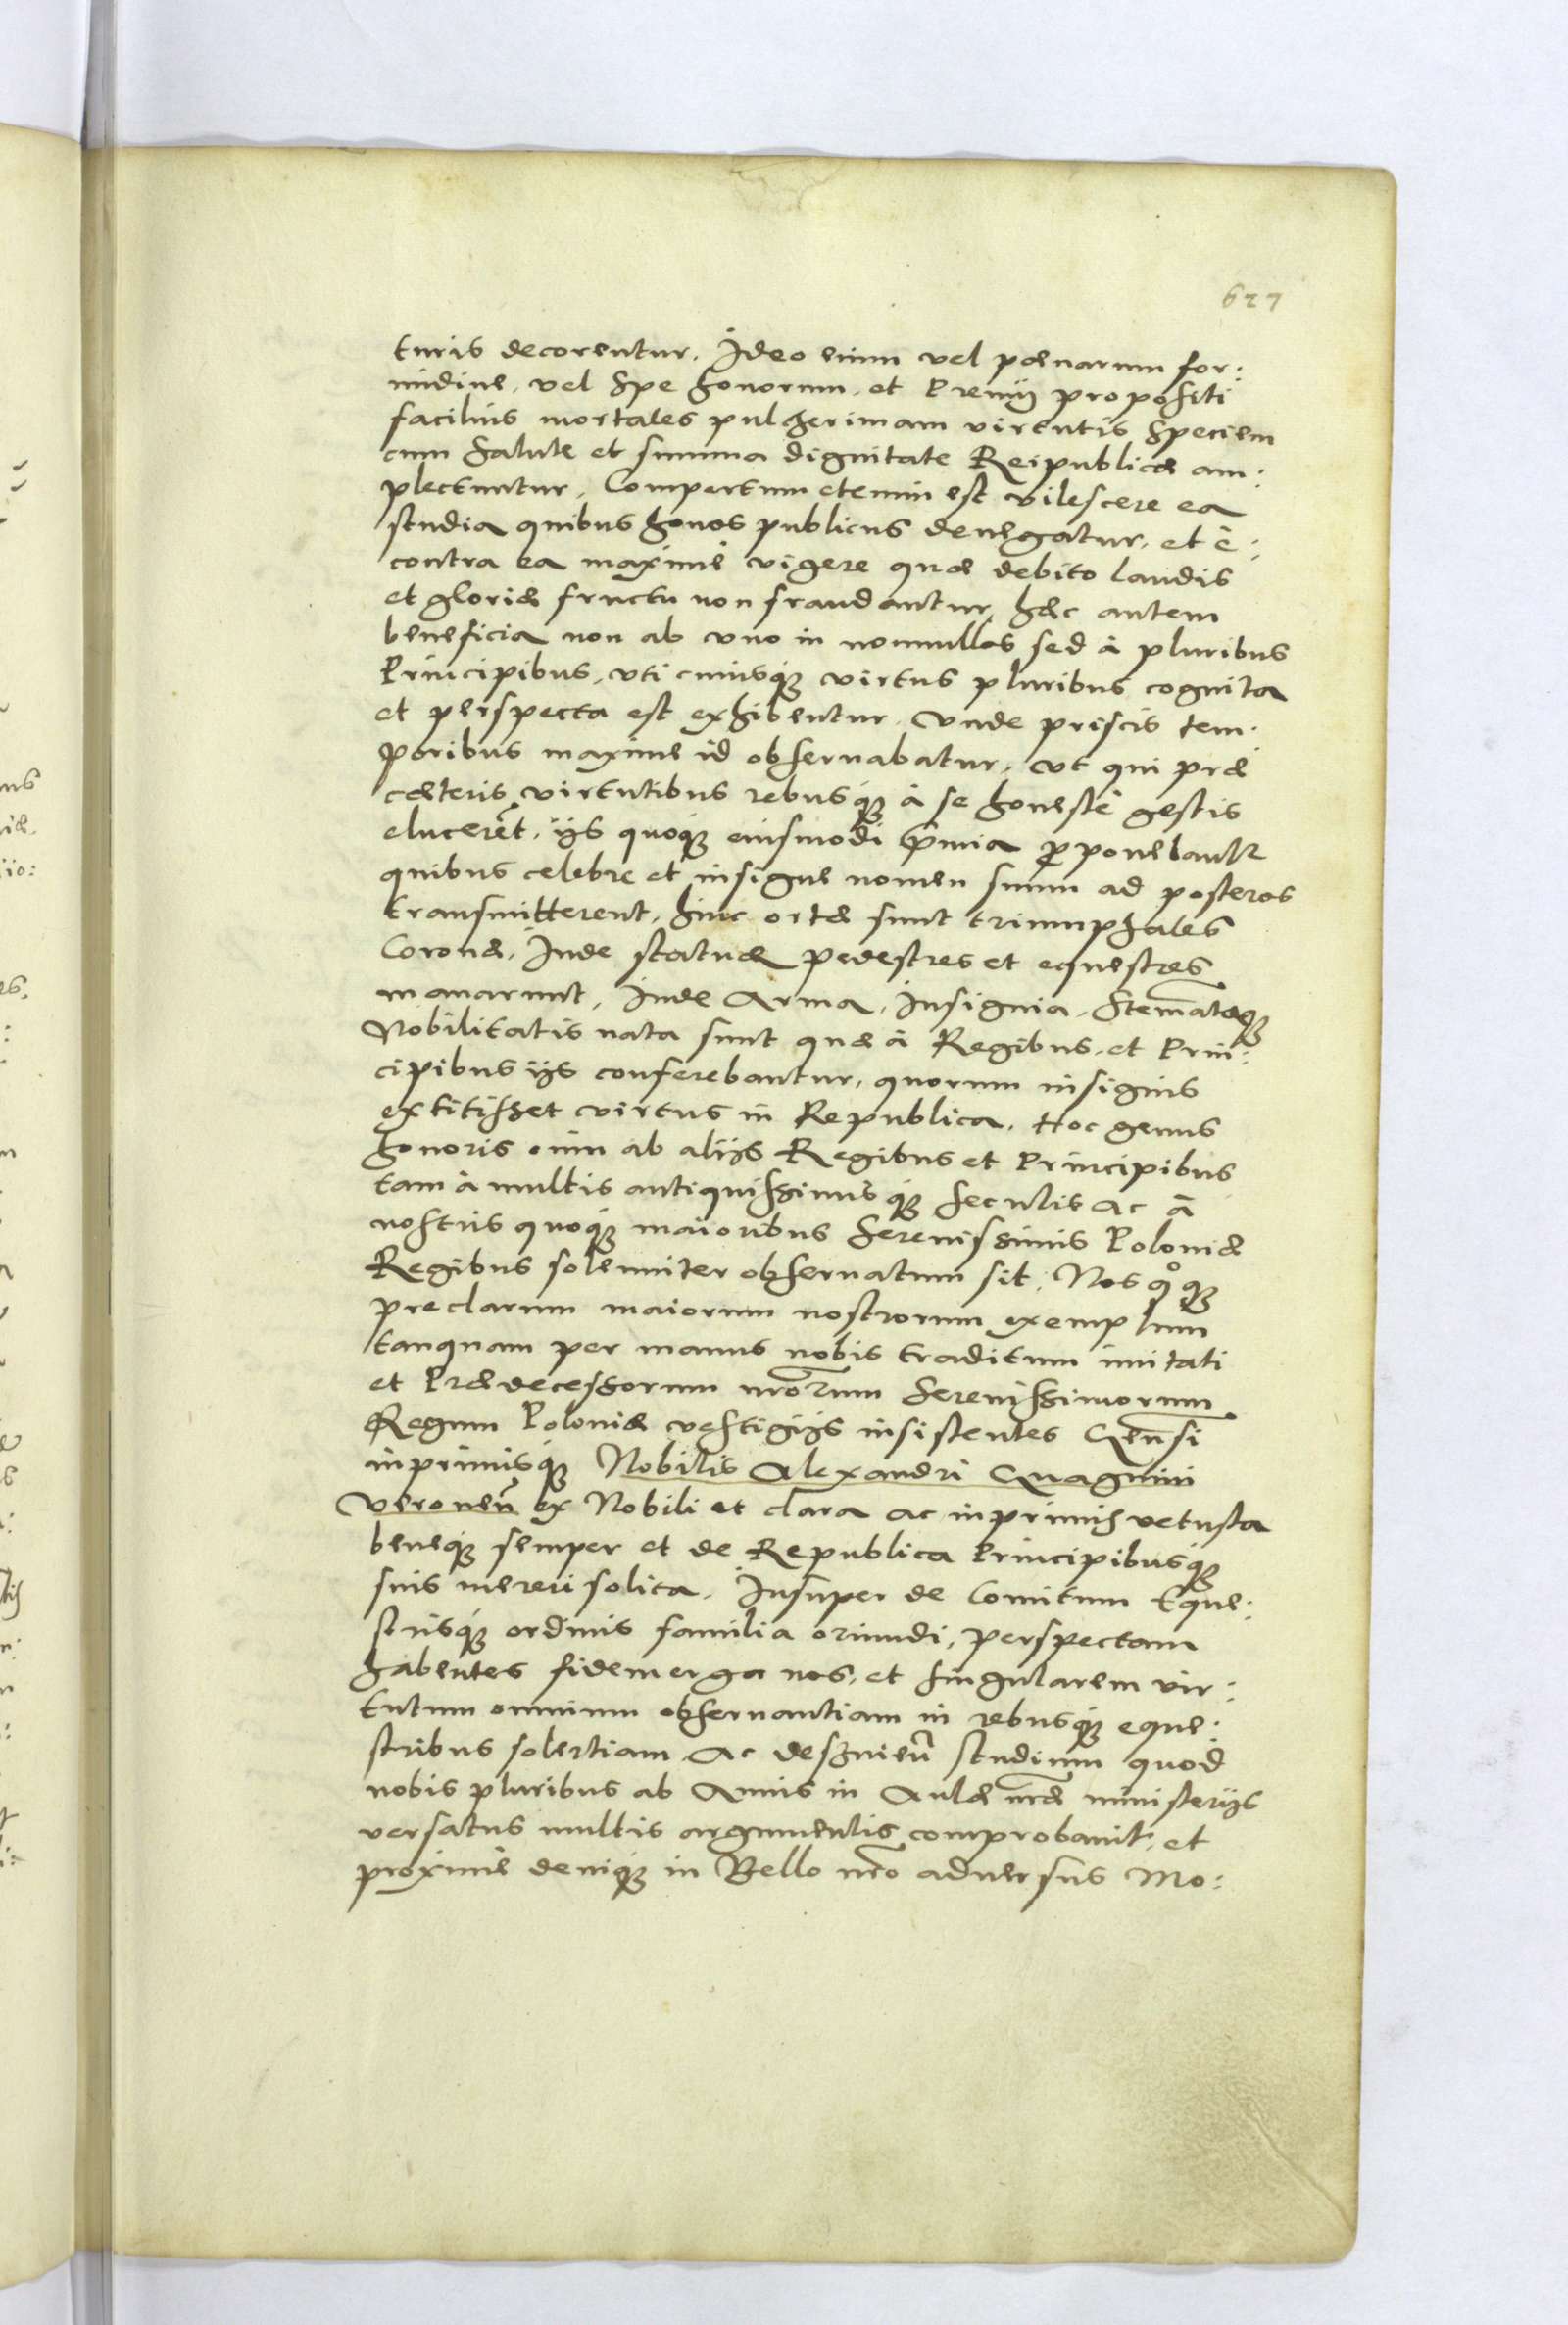 627
turis decorentur. Ideo enim vel pœnarum for:
midine, vel Spe honorum, et Premij propositi
facilius mortales pulcherimam virtutis Speciem
cum Salute et summa dignitate Reipublicæ am:
plectuntur. Compertum etenim est vilescere ea
studia quibus honos publicus denegatur, et è:
contra ea maximè vigere quæ debito laudis
et gloriæ fructu non fraudantur, hæc autem
beneficia non ab vno in nonnullos sed à pluribus
Principibus, vti cuiusq́ue virtus pluribus cognita
et perspecta est exhibentur. Vnde priscis tem:
poribus maxime id obseruabatur, vt qui præ
cæteris virtutibus rebusq́ue à se honestè gestis
elucerẽt, ijs quoq́ue eiusmodi p̃mia ꝓponebantr
quibus celebre et insigne nomen suum ad posteros
transmitterent, hinc ortæ sunt triumphales
Coronæ, Inde statuæ pedestres et equestres
manarunt, Inde Arma, Insignia, Stem̃ataq́ue
Nobilitatis nata sunt quæ à Regibus, et Prin:
cipibus ijs conferebantur, quorum insignis
extitisset virtus in Republica. Hoc genus
honoris cum ab alijs Regibus et Principibus
tam à multis antiquissimisq́ue seculis ac à
nostris quoq́ue maioribus Serenissimis Poloniæ
Regibus solenniter obseruatum sit, Nos qͦq́ue
preclarum maiorum nostrorum exemplum
tanquam per manus nobis traditum imitati
et Prædecessorum nr̃orum Serenissimorum
Regum Poloniæ vestigijs insistentes
inprimisq́ue Nobilis Alexandri Guagnini
Veroneñ ex Nobili et clara ac inprimis vetusta
beneq́ue semper et de Republica Principibusq́ue
suis mereri solita, Insuper de Comitum Eque:
strisq́ue ordinis familia oriundi, perspectam
habentes fidem erga nos, et singularem vir:
tutum omnium obseruantiam in rebusq́ue eque:
stribus solertiam ac studium quod
nobis pluribus ab Annis in Aulæ nr̃æ ministerijs
versatus multis argumentis comprobauit, et
proximè deniq́ue in Bello nr̃o aduersus Mo: